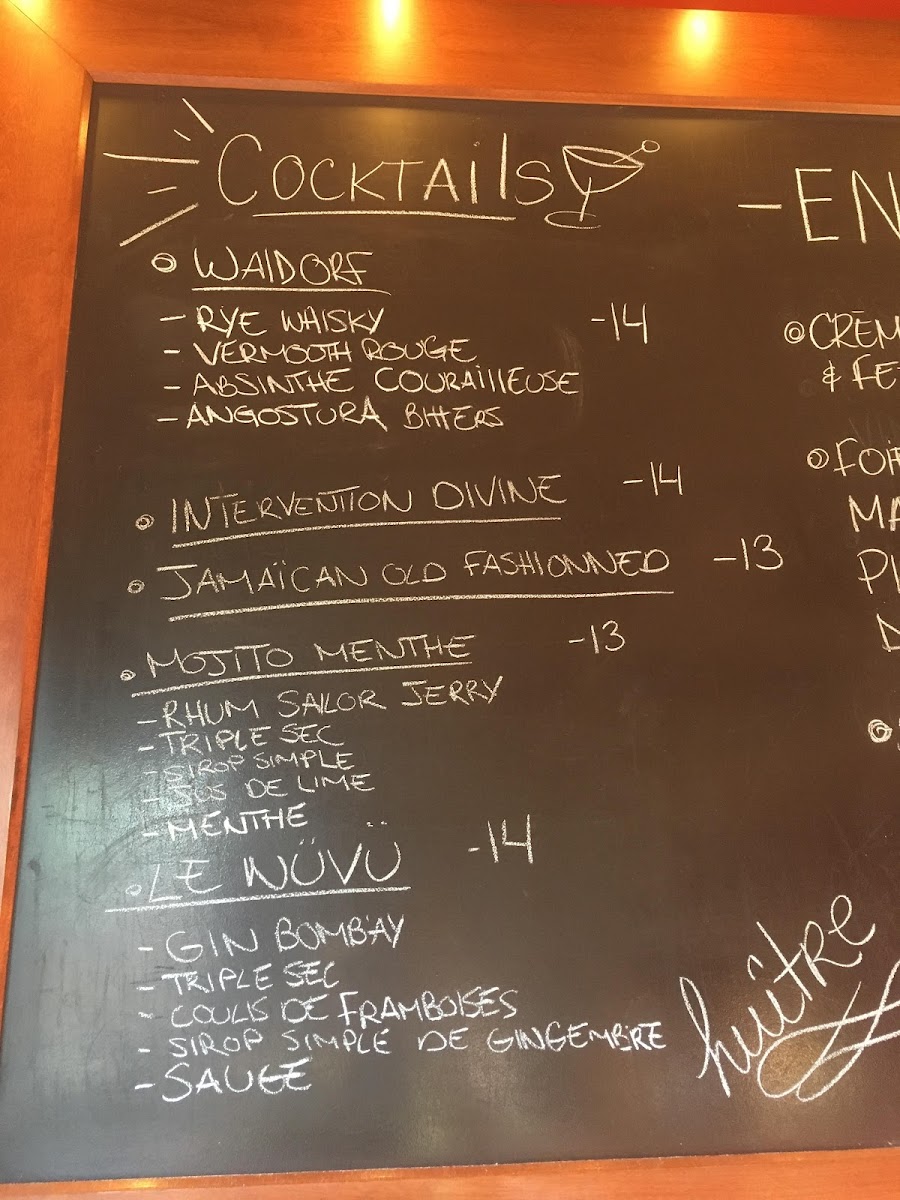 COCKTAils
WAlDORF
- RYE WHISKY -14
- VERMOOTH ROUGE
- ABSINTHE COURAillEUSE
- ANGOSTURA BITTERS
INTERVENTION DIVINE -14
JAMAÏCAN OLD FASHIONNED -13
MOJITO MENTHE -13
- RHUM SAILOR JERRY
- TRIPLE SEC
- SIROP SIMPLE
- JUS DE LIME
- MENTHE
LE NÜVÜ -14
- GIN BOMBAY
- TRIPLE SEC
- COULIS DE FRAMBOISES
- SIROP SIMPLE DE GINGEMBRE
- SAUGE
-EN
CRÈM
& FE
FOI
MA
P
D
huître